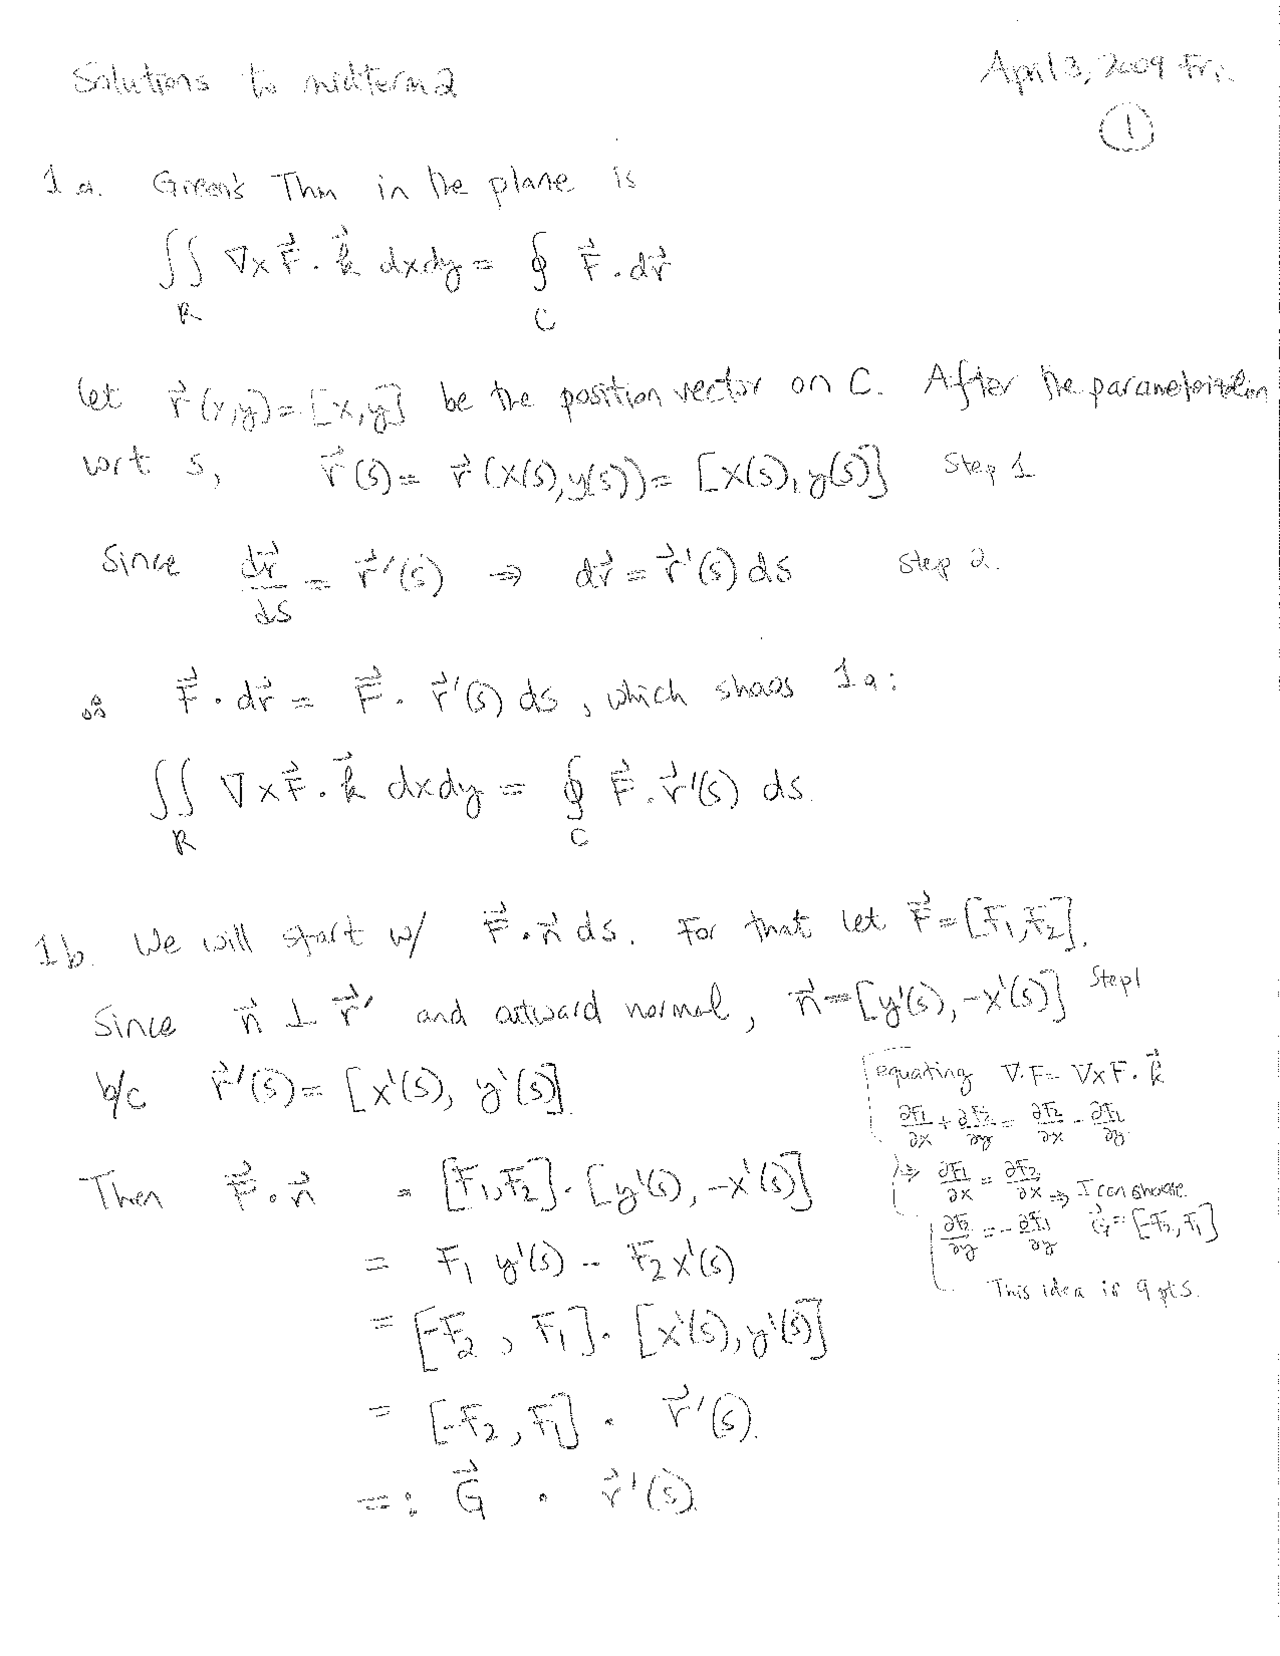 Solutions to midterm 2
April 3, 2009 Fri.
①
1 a. Green's Thm in the plane is
∬_R ∇×F⃗ · k⃗ dxdy = ∮_C F⃗ · dr⃗
Let r⃗(x,y) = [x,y] be the position vector on C. After the parameterization
wrt s, r⃗(s) = r⃗(x(s),y(s)) = [x(s), y(s)] Step 1
Since dr⃗/ds = r⃗'(s) ⇒ dr⃗ = r⃗'(s) ds Step 2.
∴ F⃗ · dr⃗ = F⃗ · r⃗'(s) ds, which shows 1a:
∬_R ∇×F⃗ · k⃗ dxdy = ∮_C F⃗ · r⃗'(s) ds.
1b. We will start w/ F⃗ · n⃗ ds. For that let F⃗ = [F₁,F₂].
Since n⃗ ⊥ r⃗' and outward normal, n⃗ = [y'(s), -x'(s)] Step1
b/c r⃗'(s) = [x'(s), y'(s)]
equating ∇·F = ∇×F · k⃗
∂F₁/∂x + ∂F₂/∂y = ∂F₂/∂x - ∂F₁/∂y
⇒ ∂F₁/∂x = ∂F₂/∂x ⇒ I can choose
∂F₂/∂y = -∂F₁/∂y G⃗ = [-F₂, F₁]
This idea is 9 pts.
Then F⃗ · n⃗ = [F₁,F₂] · [y'(s), -x'(s)]
= F₁ y'(s) - F₂ x'(s)
= [-F₂, F₁] · [x'(s), y'(s)]
= [-F₂, F₁] · r⃗'(s).
=: G⃗ · r⃗'(s).